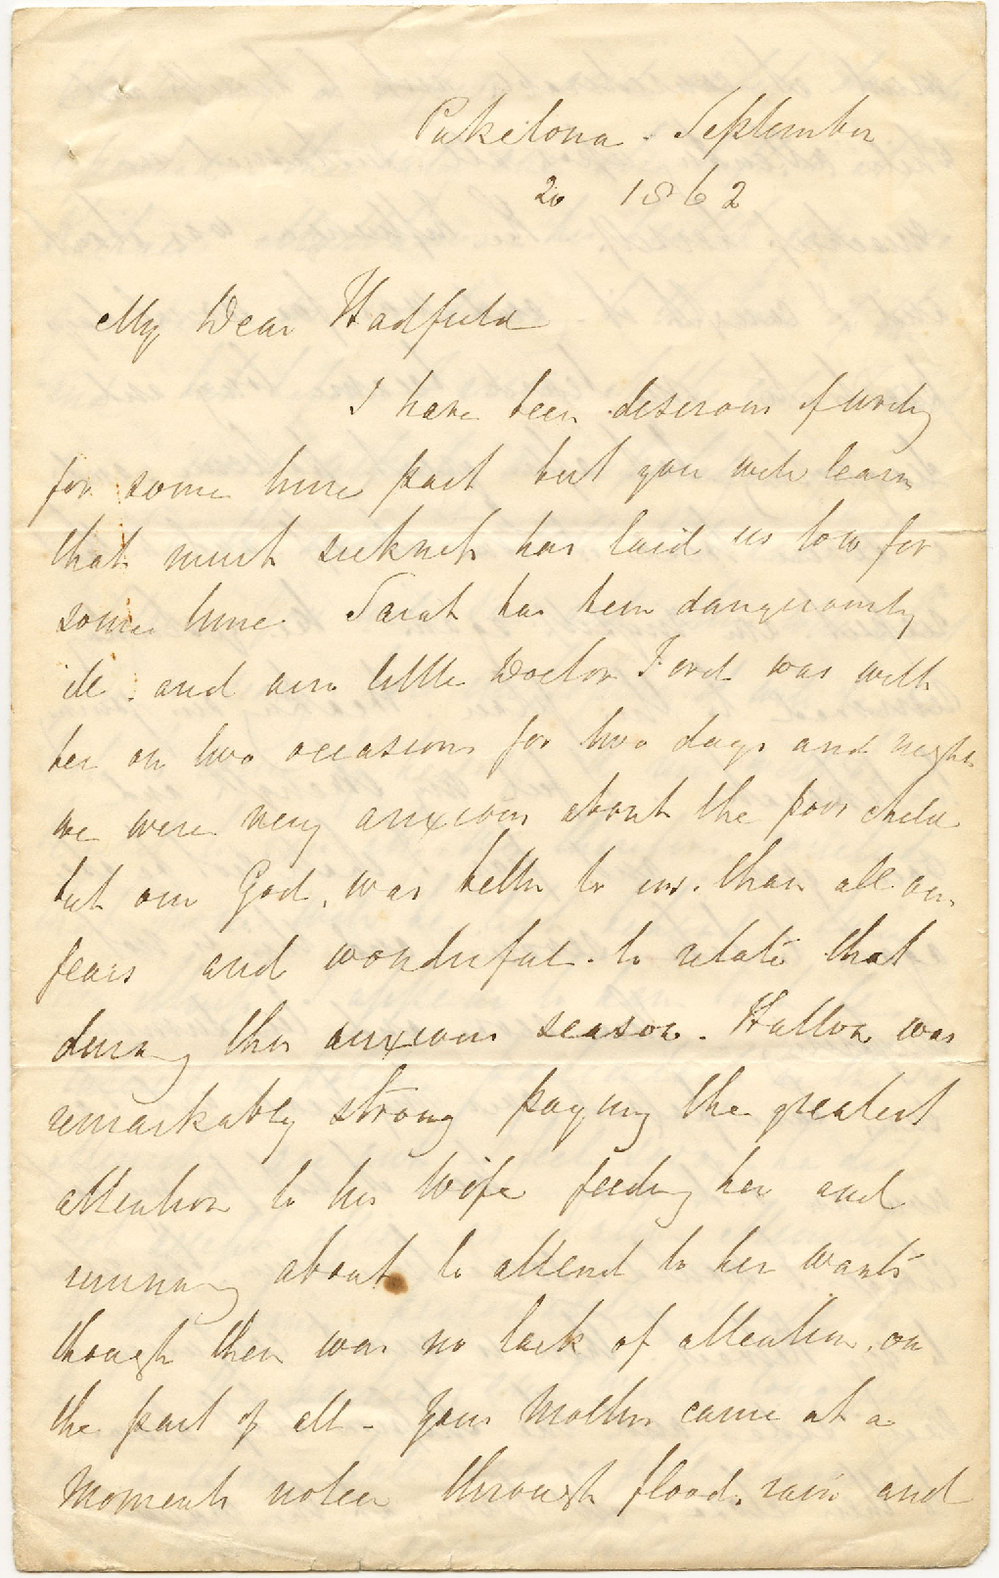 Puketona - September
20 1862
My Dear Hadfield
I have been desirous of writing
for some time past but you will learn
that much sickness has laid us low for
some time. Sarah has been dangerously
ill. and our little Doctor Ford was with
her on two occasions for two days and nights
we were very anxious about the poor child
but our God, was better to us. than all our
fears and wonderful. to relate that
during this anxious season. Hutton was
remarkably strong paying the greatest
attention to his wife feeding her and
running about to attend to her wants
though there was no lack of attention. on
the part of all - your Mother came at a
moments notice through flood, rain and